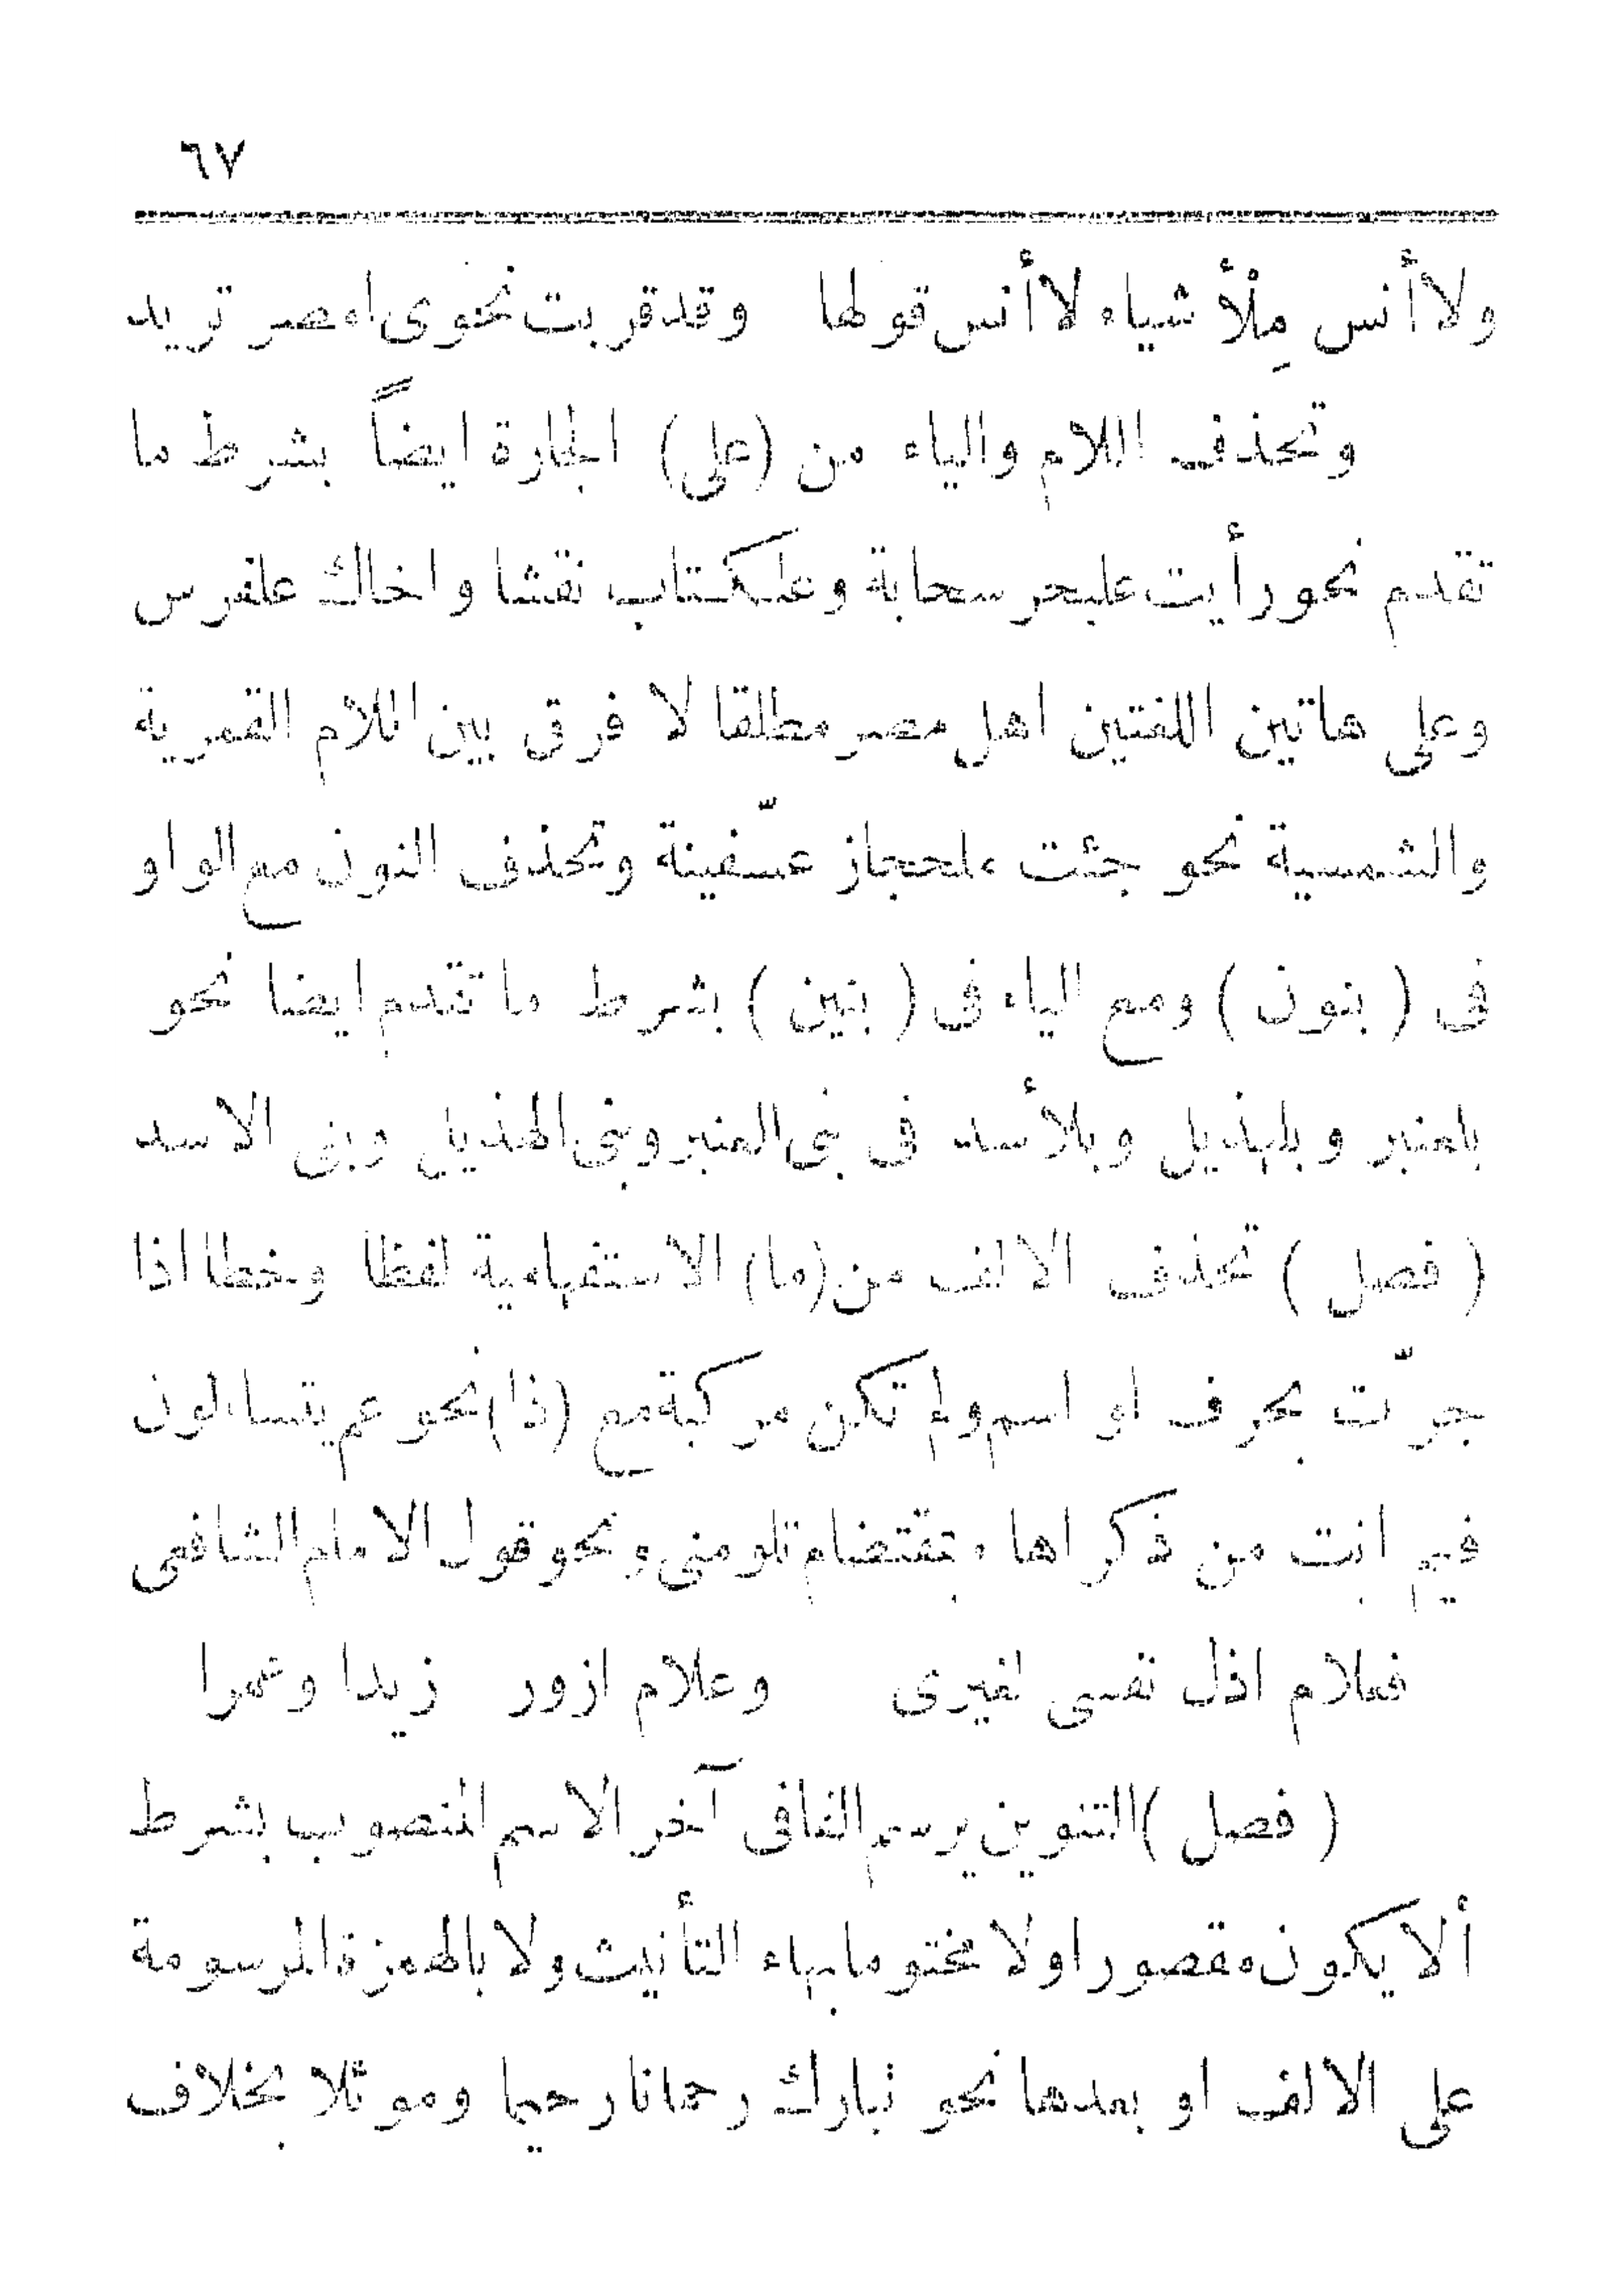 ٦٧
ولا أنس مِلْأشياء لا أنس قولها وقد قربت نحوى امصر تريد
وتحذف اللام والياء من (على) الجارة ايضاً بشرط ما
تقدم نحو رأيت علبحر سحابة وعلكتاب نقشا واخاك علفرس
وعلى هاتين اللغتين اهل مصر مطلقا لا فرق بين اللام القمرية
والشمسية نحو جئت ملحجاز عسّفينة وتحذف النون مع الواو
فى ( بنون ) ومع الياء فى ( بنين ) بشرط ما تقدم ايضا نحو
بلعنبر وبلهذيل وبلأسد فى بنى العنبر وبنى الهذيل وبنى الاسد
( فصل ) تحذف الالف من (ما) الاستفهامية لفظا وخطا اذا
جرّت بحرف او اسم ولم تكن مركبة مع (ذا) نحو عم يتساءلون
فيم انت من ذكراها بمقتضام تلومنى ونحو قول الامام الشافعى
فعلام اذل نفسى لغيرى وعلام ازور زيدا وعمرا
( فصل ) التنوين يرسم الفا فى آخر الاسم المنصوب بشرط
ألا يكون مقصورا ولا مختوما بهاء التأنيث ولا بالهمزة المرسومة
على الالف او بعدها نحو تبارك رحمانا رحيما وموئلا بخلاف